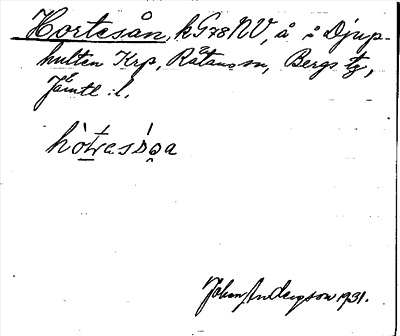 Hortesån, k G 78 NV, å i Djup-
hulten Krp, Rätans sn, Bergs tg,
Jämtl. l.
hòtresóa
Johan Anderson 1931.